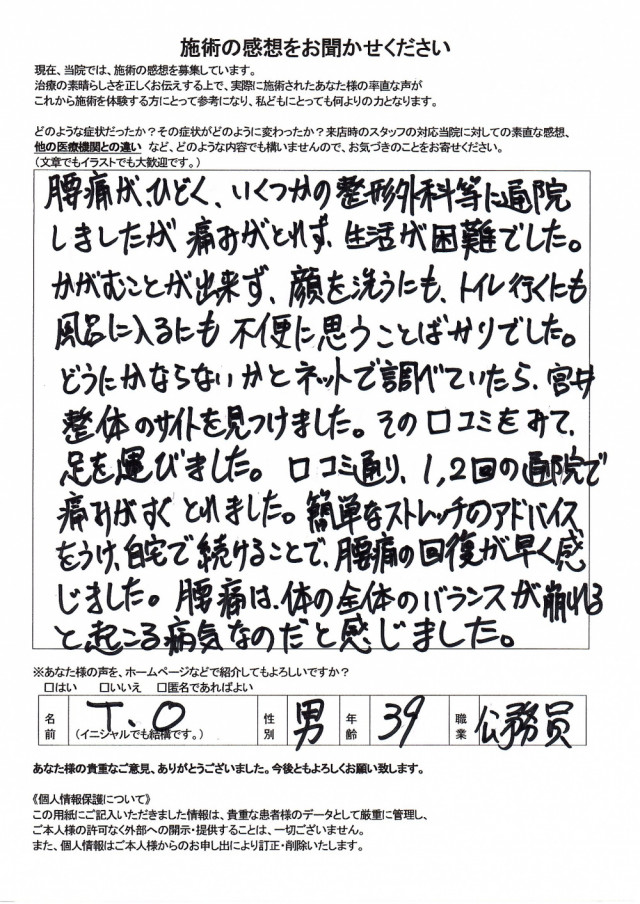 施術の感想をお聞かせください
現在、当院では、施術の感想を募集しています。
治療の素晴らしさを正しくお伝えする上で、実際に施術されたあなた様の率直な声が
これから施術を体験する方にとって参考になり、私どもにとっても何よりの力となります。
どのような症状だったか？その症状がどのように変わったか？来店時のスタッフの対応当院に対しての素直な感想、
他の医療機関との違い など、どのような内容でも構いませんので、お気づきのことをお寄せください。
（文章でもイラストでも大歓迎です。）
腰痛が、ひどく、いくつかの整形外科等に通院
しましたが 痛みがとれず、生活が困難でした。
かがむことが出来ず、顔を洗うにも、トイレ行くにも
風呂に入るにも 不便に思うことばかりでした。
どうにかならないかとネットで調べていたら、宮井
整体のサイトを見つけました。その口コミをみて、
足を運びました。口コミ通り、1,2回の通院で
痛みがすぐとれました。簡単なストレッチのアドバイス
をうけ、自宅で続けることで、腰痛の回復が早く感
じました。腰痛は、体の全体のバランスが崩れる
と起こる病気なのだと感じました。
※あなた様の声を、ホームページなどで紹介してもよろしいですか？
□はい □いいえ □匿名であればよい
名前 T.O （イニシャルでも結構です。） 性別 男 年齢 39 職業 公務員
あなた様の貴重なご意見、ありがとうございました。今後ともよろしくお願い致します。
《個人情報保護について》
この用紙にご記入いただきました情報は、貴重な患者様のデータとして厳重に管理し、
ご本人様の許可なく外部への開示・提供することは、一切ございません。
また、個人情報はご本人様からのお申し出により訂正・削除いたします。